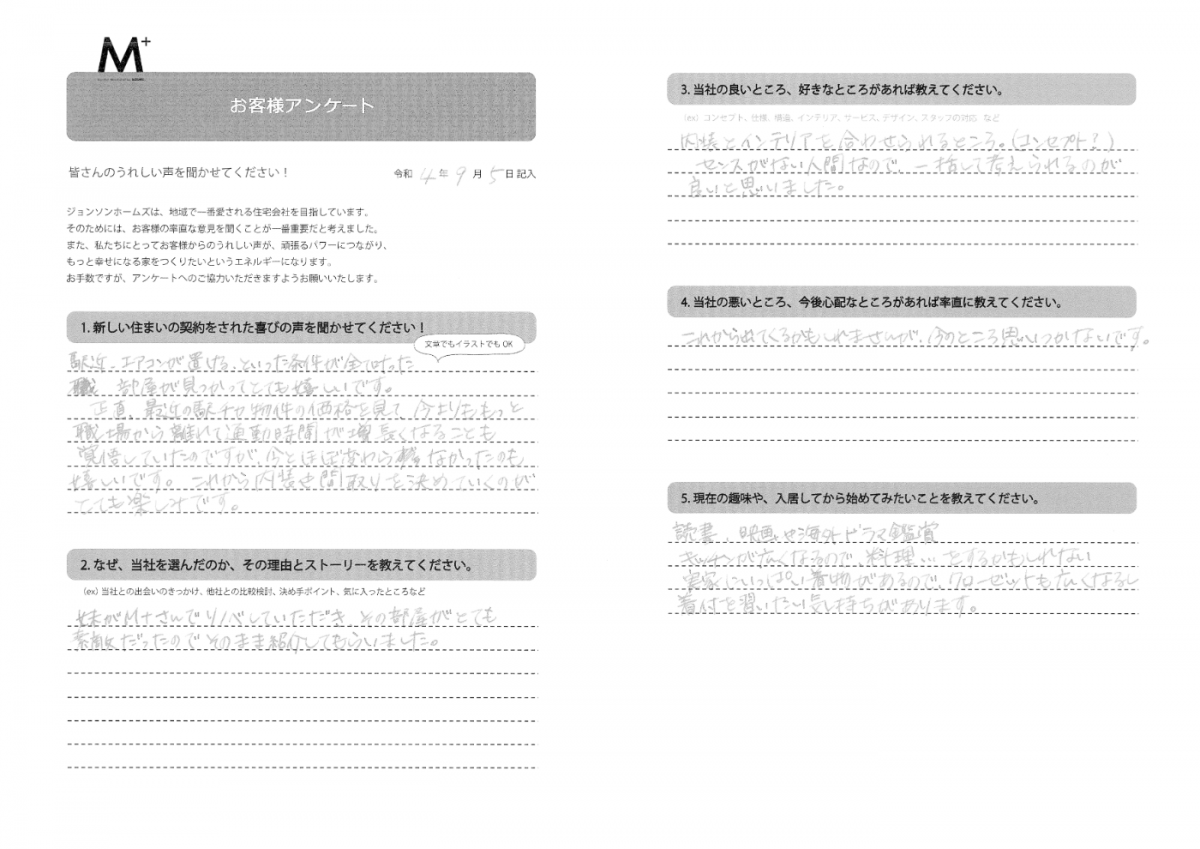 M+
お客様アンケート
皆さんのうれしい声を聞かせてください！
令和 4 年 9 月 5 日 記入
ジョンソンホームズは、地域で一番愛される住宅会社を目指しています。
そのためには、お客様の率直な意見を聞くことが一番重要だと考えました。
また、私たちにとってお客様からのうれしい声が、頑張るパワーにつながり、
もっと幸せになる家をつくりたいというエネルギーになります。
お手数ですが、アンケートへのご協力いただきますようお願いいたします。
1. 新しい住まいの契約をされた喜びの声を聞かせてください！
文章でもイラストでも OK
駅近、エアコンが置ける、といった条件が全て叶った
部屋が見つかってとても嬉しいです。
正直、最近の駅チカ物件の価格を見て、今よりももっと
職場から離れて通勤時間が長くなることも
覚悟していたのですが、今とほぼ変わらなかったのも
嬉しいです。これから内装や間取りを決めていくのが
とても楽しみです。
2. なぜ、当社を選んだのか、その理由とストーリーを教えてください。
（ex）当社との出会いのきっかけ、他社との比較検討、決め手ポイント、気に入ったところなど
妹がM+さんでリノベしていただき、その部屋がとても
素敵だったのでそのまま紹介してもらいました。
3. 当社の良いところ、好きなところがあれば教えてください。
（ex）コンセプト、仕様、構造、インテリア、サービス、デザイン、スタッフの対応 など
内装とインテリアを合わせられるところ。(コンセプト？)
センスがない人間なので、一括して考えられるのが
良いと思いました。
4. 当社の悪いところ、今後心配なところがあれば率直に教えてください。
これから出てくるかもしれませんが、今のところ思いつかないです。
5. 現在の趣味や、入居してから始めてみたいことを教えてください。
読書、映画や海外ドラマ鑑賞
キッチンが広くなるので、料理…をするかもしれない
実家にいっぱい着物があるので、クローゼットも広くなるし
着付を習いたい気持ちがあります。